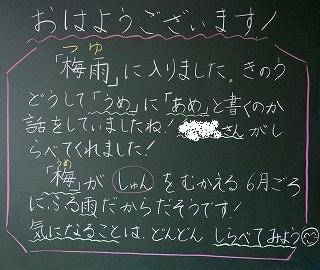 おはようございます!
つゆ
「梅雨」に入りました。きのう
どうして「うめ」に「あめ」と書くのか
話をしていましたね! さんがし
らべてくれました!
うめ
「梅」が しゅん をむかえる 6月ごろ
にふる雨だからだそうです!
気になることは、どんどん しらべてみよう